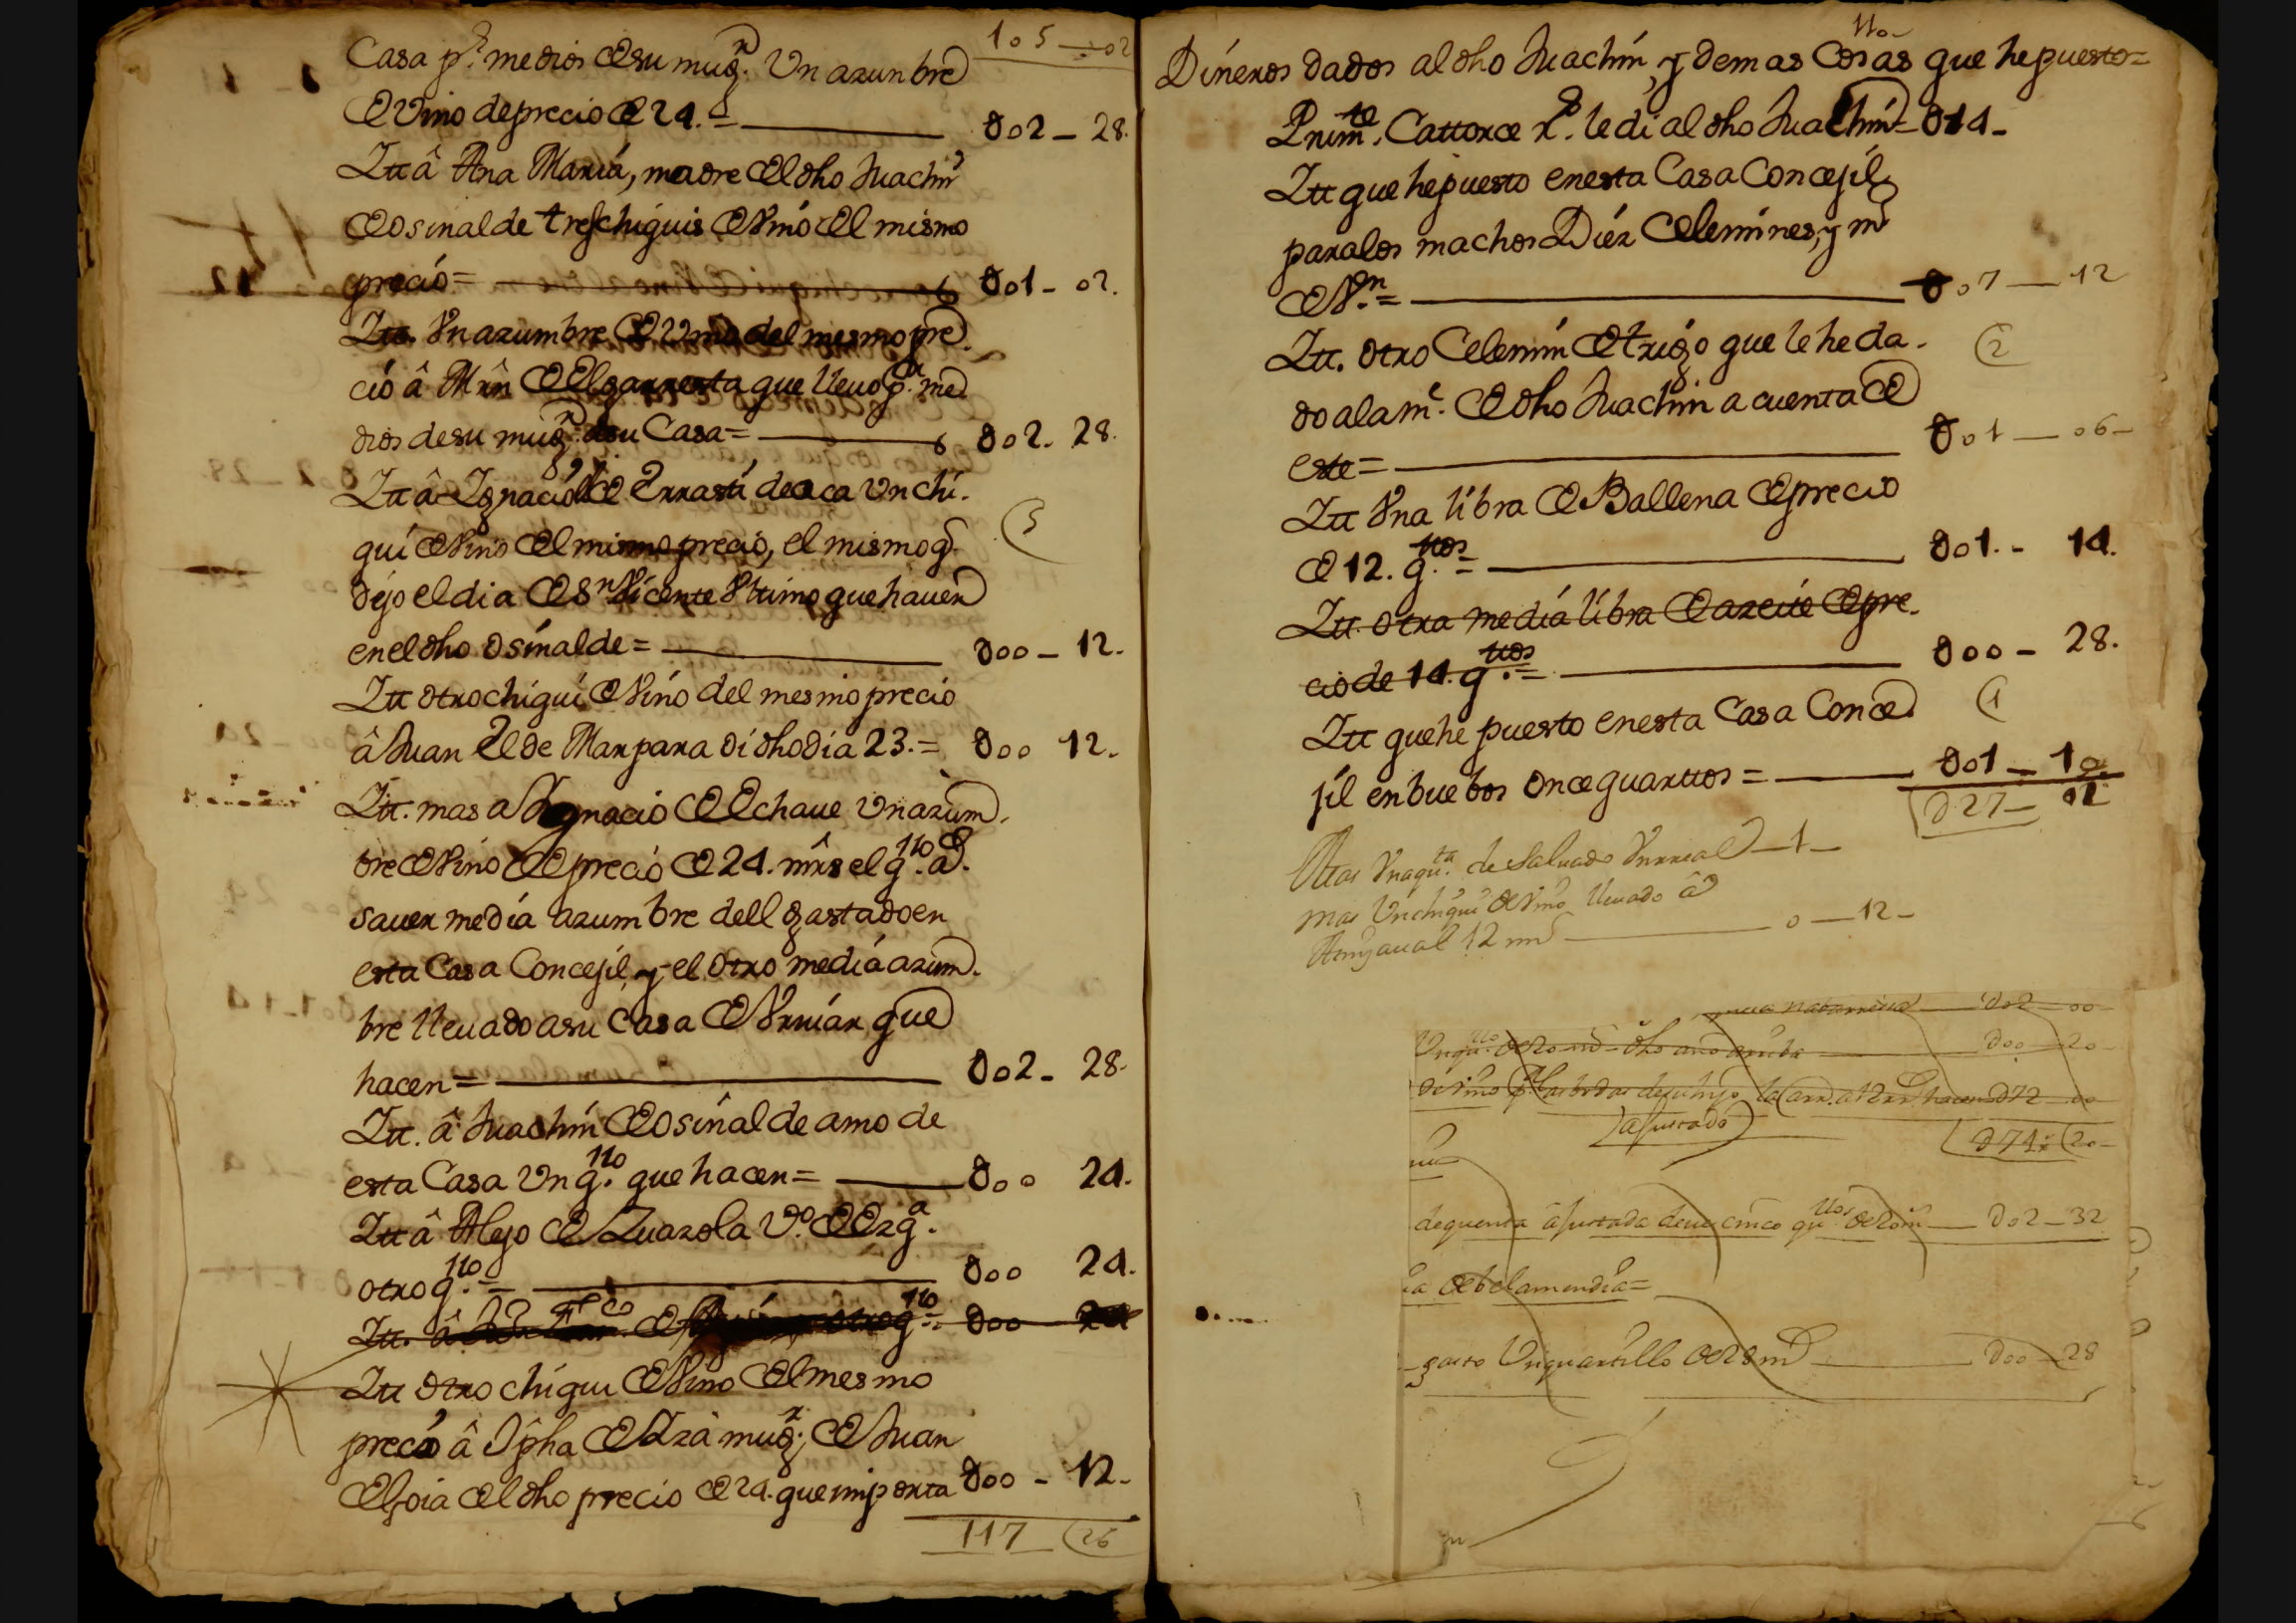 105 — 02
Casa pr. medios de su mugr. Vn azunbre
de Vino de precio de 24. = 002 — 28.
Itt â Ana Maria, madre del dho Juachin
de Osinalde tres chiguis de Vino del mismo
precio = 001 - 02.
Itt. Vn azumbre de Vino del mesmo pre
cio â Mrn de Elgarresta que lleuo pr. me
dios de su mugr. de su Casa = 002. 28.
Itt â Ignacio de Errasti de aca Vn chi-
gui de Vino del mismo precio, el mismo q.
dejo el dia de Sn Vicente Vltimo que hauer
en el dho Osinalde = 000 — 12.
Itt otro chigui de Vino del mesmo precio
â Juan de Mar para di dho dia 23. = 000 12.
Itt. mas a Ignacio de Echaue Vn azum
bre de Vino de precio de 24. mrs el qtto. a
sauer media azumbre dell gastado en
esta Casa Concejil, y el otro media azum.
bre lleuado a su Casa de Vrruiar que
hacen = 002 - 28.
Itt. â Juachin de Osinalde amo de
esta Casa Vn qtto. que hacen = 000 24.
Itt â Alejo de Zuazola Vo. de Azga.
otro qtto. = 000 24.
Itt. â otro qtto. = 000 24
Itt otro chigui de Vino del mesmo
precio â Jpha de Aza mugr. de Juan
de Egoia del dho precio de 24. que importa 000 - 12.
117 26
Dineros dados al dho Juachin, y demas Cosas que he puesto =
Primte. Cattorce rs. le di al dho Juachin - 014 -
Itt que he puesto en esta Casa Concejil
para los machos Diez Celemines, y mo
de Vn. = 007 — 12
Itt. otro Celemin de trigo que le he da-
do a la me. de dho Juachin a cuenta de
este = 001 — 06 -
2
Itt Vna libra de Ballena de precio
de 12. qttos = 001. - 14.
Itt. otra media libra de azeite de pre-
cio de 14. qttos = 000 - 28.
Itt que he puesto en esta Casa Conce
1
jil en buebos once quarttos = 001 — 10
027 — 02
Mas Vna quta. de Saluado Vn real — 1 —
mas Vn chigui de Vino lleuado â
12 ms — 0 — 12 —
002 — 00
Vn qutto. de 20 ms dho año arriba 000 — 20 -
de Vino pa. las bodas de su hijo la carr. a 12 rrs hacen 072 — 00
ajustado
074: 20 -
de quenta ajustada deue cinco quttos de 20 ms — 002 — 32
ia de belamendia =
gasto Vn quartillo de 28 ms 000 — 28